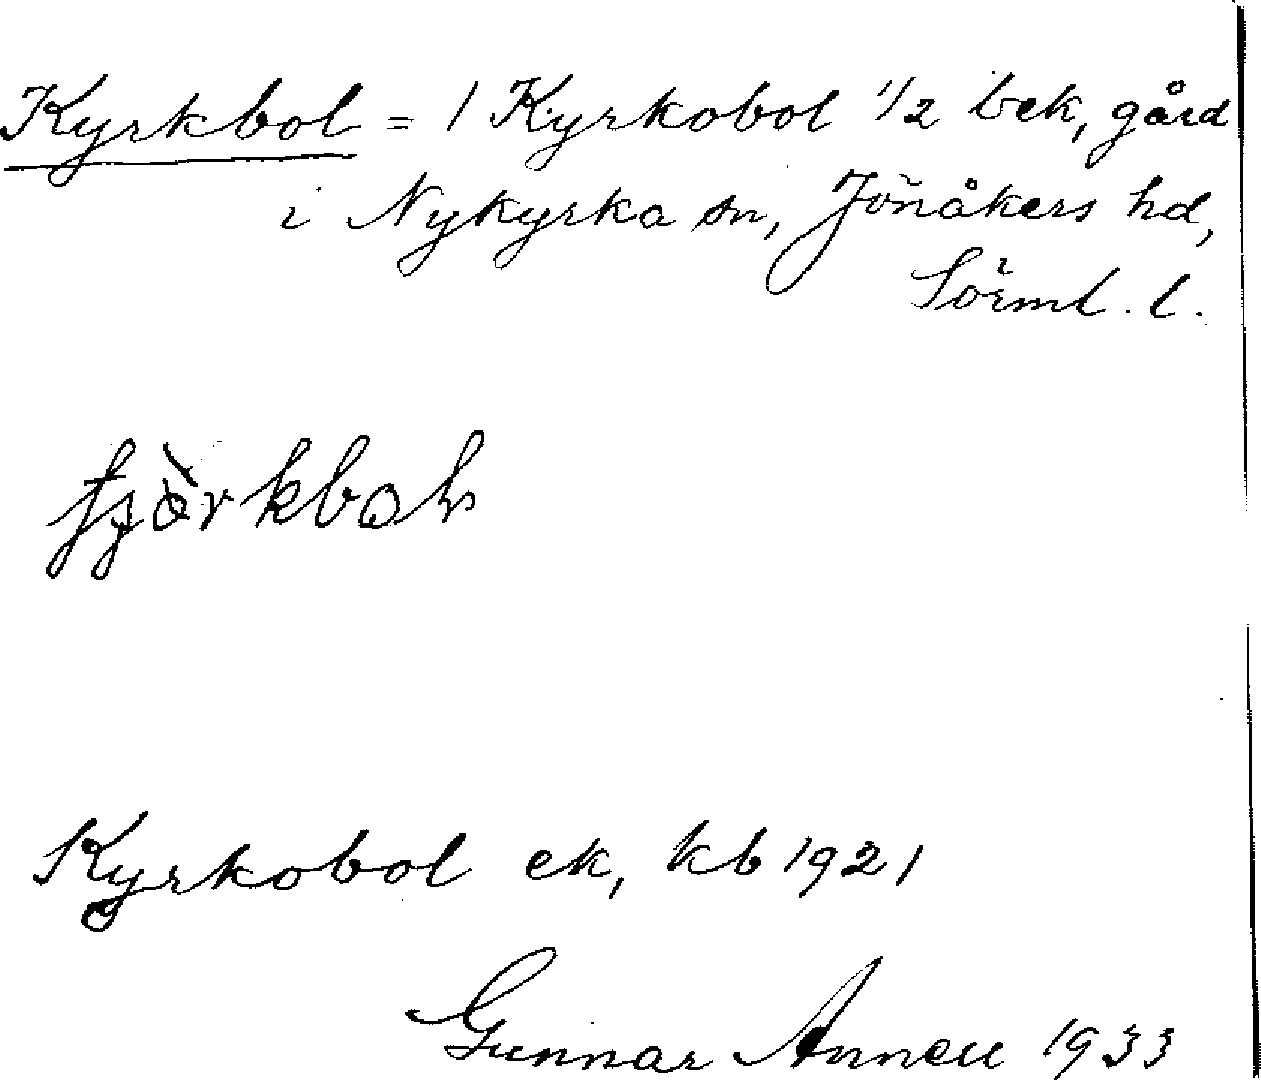 Kyrkbol = 1 Kyrkobol 1/2 bek, gård
i Nykyrka sn, Jönåkers hd,
Sörml. l.
Kyrkobol ek, kb 1921
Gunnar 1933